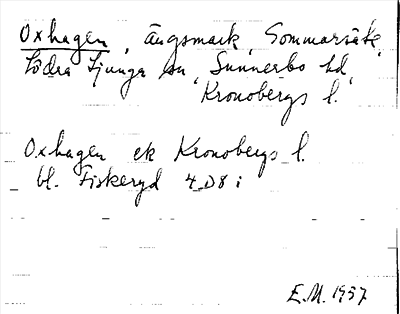 Oxhagen, ängsmark, Sommarsäte,
Södra Ljunga sn, Sunnerbo hd,
Kronobergs l.
Oxhagen ek Kronobergs l.
bl. Fiskeryd 4D8i
E.M. 1957